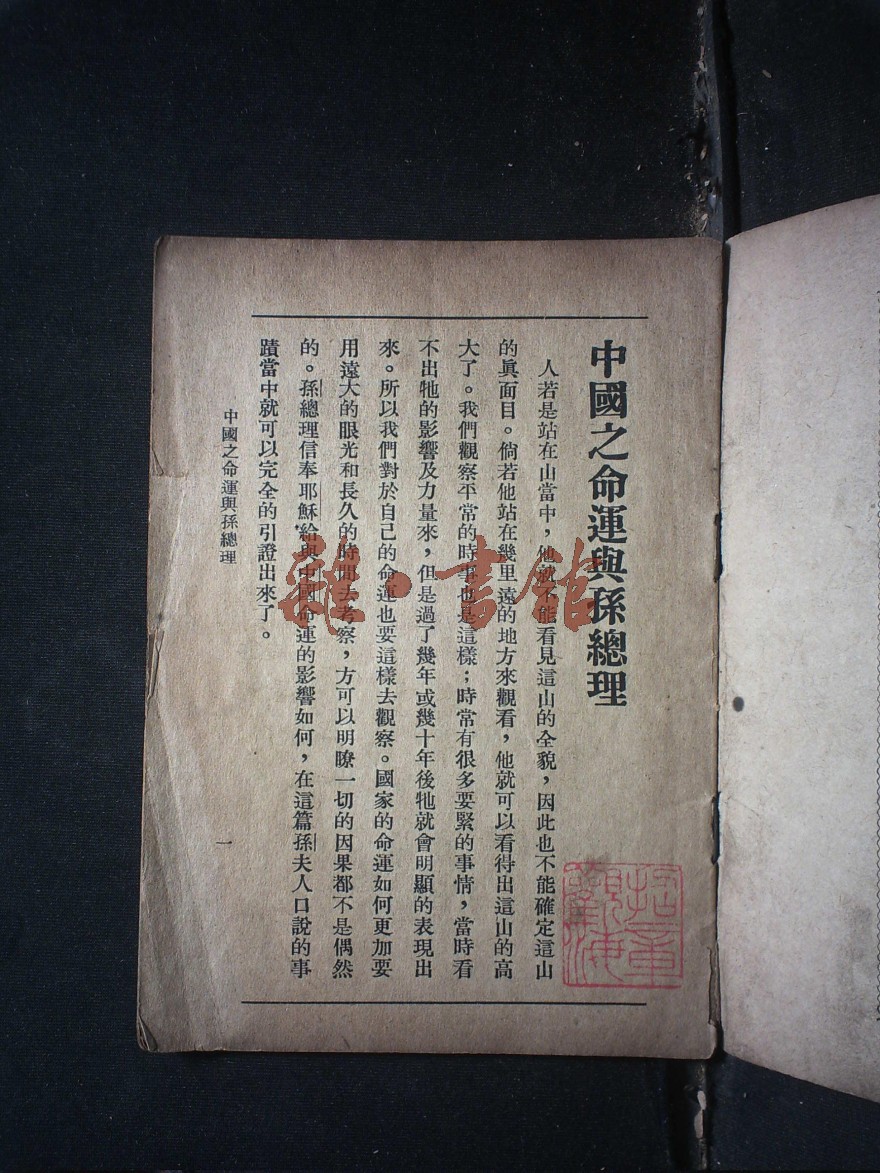 中國之命運與孫總理
人若是站在山當中，他就不能看見這山的全貌，因此也不能確定這山
的眞面目。倘若他站在幾里遠的地方來觀看，他就可以看得出這山的高
大了。我們觀察平常的時事也是這樣；時常有很多要緊的事情，當時看
不出牠的影響及力量來，但是過了幾年或幾十年後牠就會明顯的表現出
來。所以我們對於自己的命運也要這樣去觀察。國家的命運如何更加要
用遠大的眼光和長久的時間去考察，方可以明瞭一切的因果都不是偶然
的。孫總理信奉耶穌給與中國命運的影響如何，在這篇孫夫人口說的事
蹟當中就可以完全的引證出來了。
中國之命運與孫總理
一
雜·書館